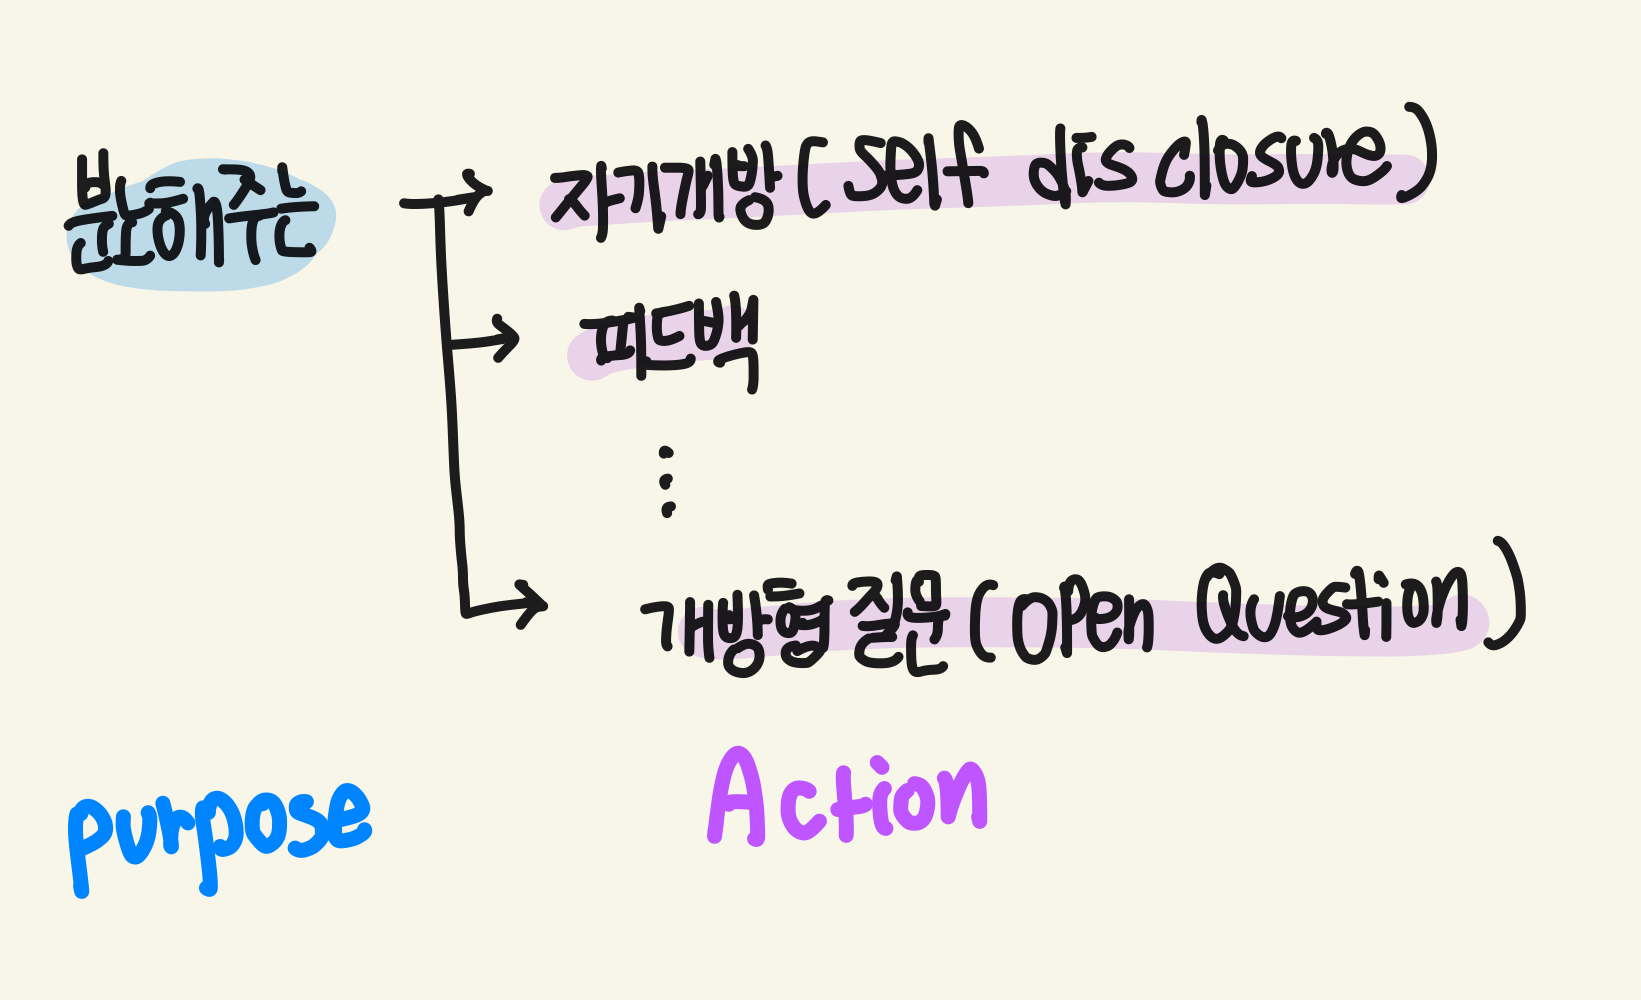 분노해주는 → 자기개방(Self disclosure)
→ 피드백
⋮
→ 개방형 질문(Open Question)
purpose Action